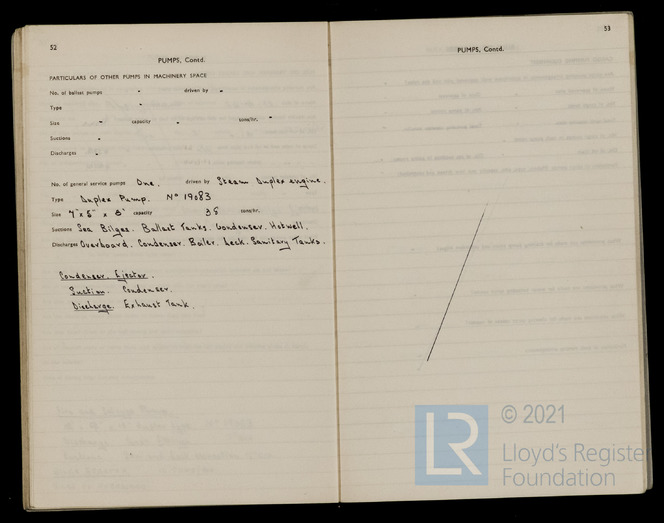 52
PUMPS, Contd.
PARTICULARS OF OTHER PUMPS IN MACHINERY SPACE
No. of ballast pumps - driven by -
Type -
Size - capacity - tons/hr. -
Suctions -
Discharges -
No. of general service pumps One. driven by Steam Duplex engine.
Type Duplex Pump. No 19083
Size 7" x 5" x 8" capacity 35 tons/hr.
Suctions Sea Bilges. Ballast Tanks. Condenser. Hotwell.
Discharges Overboard. Condenser. Boiler. Deck. Sanitary Tanks.
Condenser Ejector.
Suction. Condenser.
Discharge. Exhaust Tank.
53
PUMPS, Contd.
LR © 2021
Lloyd's Register
Foundation